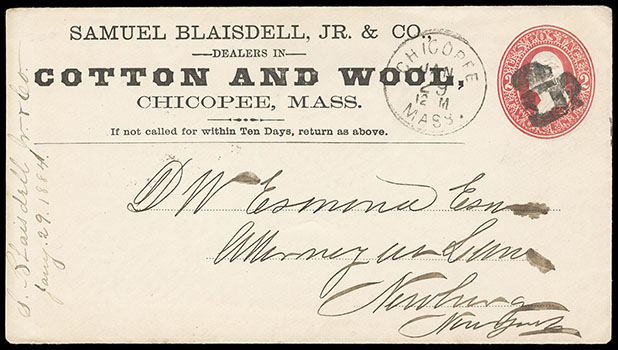 SAMUEL BLAISDELL, JR. & CO.,
DEALERS IN
COTTON AND WOOL,
CHICOPEE, MASS.
If not called for within Ten Days, return as above.
CHICOPEE
JAN
29
12 M
MASS.
D W Esmond Esq
Attorney at Law
Newburg
New York
S. Blaisdell Jr & Co.
Jany. 29. 1884